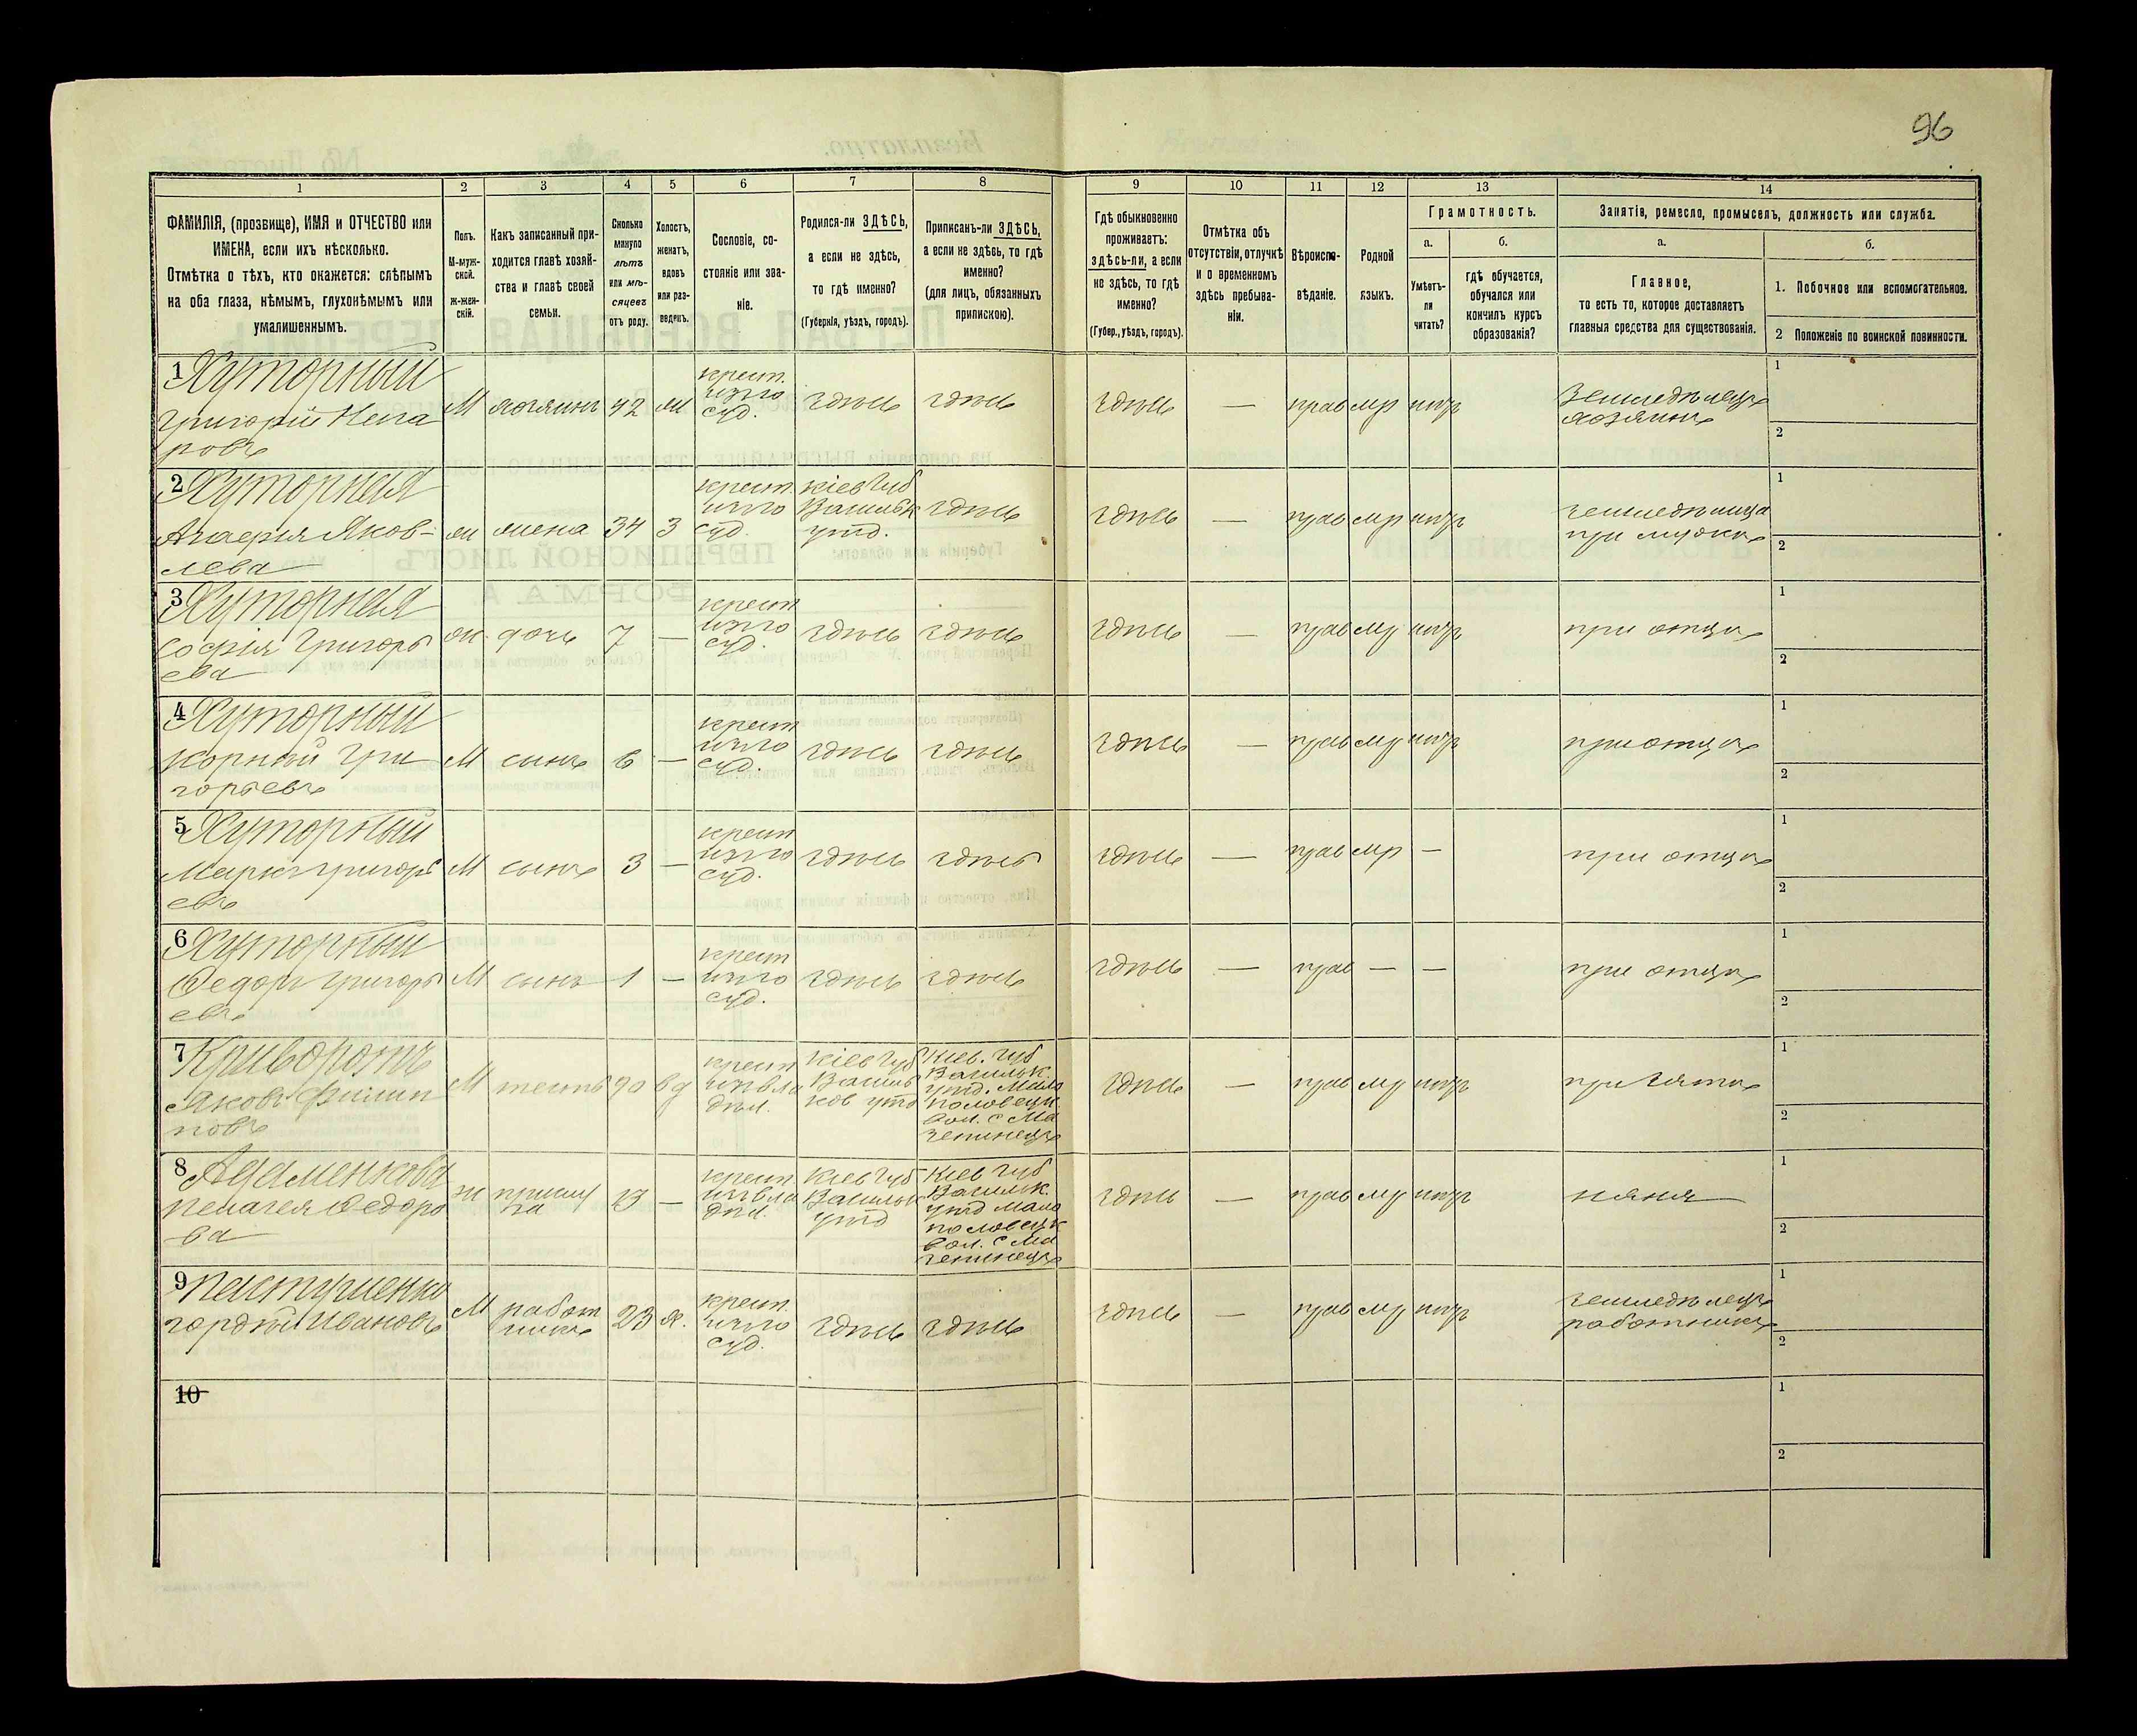 96
1 2 3 4 5 6 7 8 9 10 11 12 13 14
ФАМИЛІЯ, (прозвище), ИМЯ и ОТЧЕСТВО или
ИМЕНА, если ихъ нѣсколько.
Отмѣтка о тѣхъ, кто окажется: слѣпымъ
на оба глаза, нѣмымъ, глухонѣмымъ или
умалишеннымъ.
Полъ.
М-муж-
ской.
ж-жен-
скій.
Какъ записанный при-
ходится главѣ хозяй-
ства и главѣ своей
семьи.
Сколько
минуло
лѣтъ
или мѣ-
сяцевъ
отъ роду.
Холостъ,
женатъ,
вдовъ
или раз-
веденъ.
Сословіе, со-
стояніе или зва-
ніе.
Родился-ли ЗДѢСЬ,
а если не здѣсь,
то гдѣ именно?
(Губернія, уѣздъ, городъ).
Приписанъ-ли ЗДѢСЬ,
а если не здѣсь, то гдѣ
именно?
(для лицъ, обязанныхъ
припискою).
Гдѣ обыкновенно
проживаетъ:
здѣсь-ли, а если
не здѣсь, то гдѣ
именно?
(Губер., уѣздъ, городъ).
Отмѣтка объ
отсутствіи, отлучкѣ
и о временномъ
здѣсь пребыва-
ніи.
Вѣроиспо-
вѣданіе.
Родной
языкъ.
Грамотность.
а.
Умѣетъ-
ли
читать?
б.
гдѣ обучается,
обучался или
кончилъ курсъ
образованія?
Занятіе, ремесло, промыселъ, должность или служба.
а.
Главное,
то есть то, которое доставляетъ
главныя средства для существованія.
б.
1. Побочное или вспомогательное.
2 Положеніе по воинской повинности.
1 Хуторный
Григорій
ровъ
М хозяинъ 42 ж
крест.
изъ го
суд.
здѣсь здѣсь здѣсь — прав мр нѣтъ
земледѣлецъ
хозяинъ
1
2
2 Хуторная
Агафія Яков-
лева
ж жена 34 З
крест.
изъ го
суд.
Кіев губ
Васильк
уѣзд.
здѣсь здѣсь — прав мр нѣтъ
земледѣлица
при мужѣ
1
2
3 Хуторная
Софія Григорь
ева
ж дочь 7 —
крест
изъ го
суд.
здѣсь здѣсь здѣсь — прав мр нѣтъ при отцѣ
1
2
4 Хуторный
Корній Гри
горьевъ
М сынъ 6 —
крест
изъ го
суд.
здѣсь здѣсь здѣсь — прав мр нѣтъ при отцѣ
1
2
5 Хуторный
Маркъ Григорь
евъ
М сынъ 3 —
крест
изъ го
суд.
здѣсь здѣсь здѣсь — прав мр — при отцѣ
1
2
6 Хуторный
Федоръ Григорь
евъ
М сынъ 1 —
крест
изъ го
суд.
здѣсь здѣсь здѣсь — прав — — при отцѣ
1
2
7 Криворотъ
Яковъ Филип
повъ
М тесть 70 вд
крест
изъ вла
дѣл.
Кіев губ
Василь
ков уѣзд
Кіев. губ
Васильк.
уѣзд. Мало
половецк.
вол. с Ма
зепинецъ
здѣсь — прав мр нѣтъ при зятѣ
1
2
8 Адаменкова
Пелагея Федоро
ва
ж прислу
га
13 —
крест.
изъ вла
дѣл.
Кіев губ
Васильк
уѣзд
Кіев губ
Васильк.
уѣзд Мало
половецк
вол. с Ма
зепинецъ
здѣсь — прав мр нѣтъ няня
1
2
9 Пастушенко
Гордій Ивановъ
М работ
никъ
23 х.
крест.
изъ го
суд.
здѣсь здѣсь здѣсь — прав мр нѣтъ
земледѣлецъ
работникъ
1
2
10
1
2